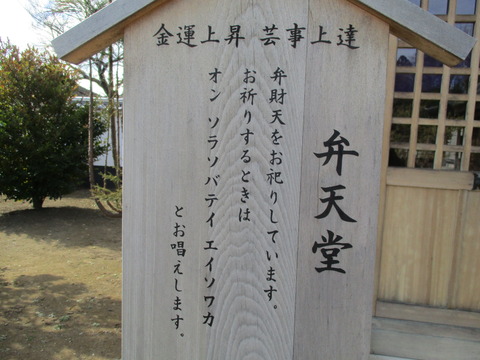 金運上昇 芸事上達
弁天堂
弁財天をお祀りしています。
お祈りするときは
オン ソラソバテイ エイソワカ
とお唱えします。